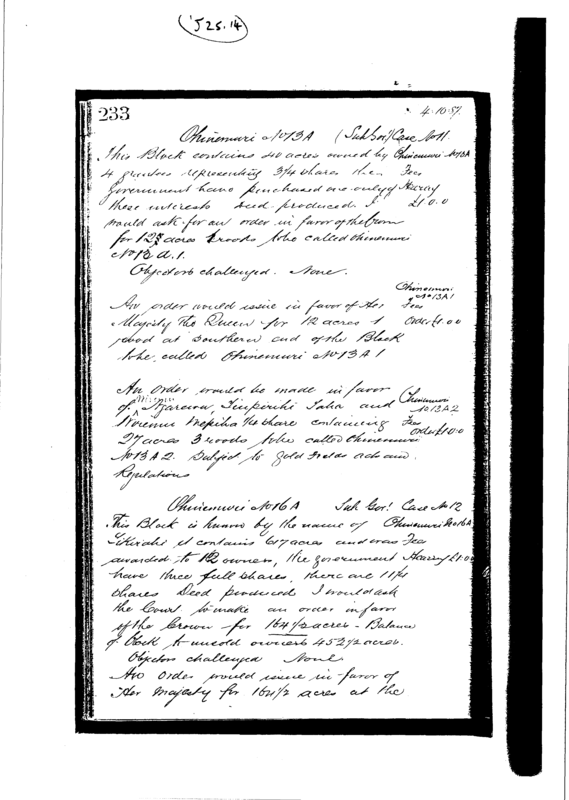 J25.14
233
4.10.87.
Ohinemuri No 13A (Sub Gov!) Case No 11.
This Block contains 40 acres owned by Ohinemuri No 13A
4 grantees representing 3¼ shares the Fees
Government have purchased one only of Hearing
these interests deed produced I £1.0.0
would ask for an order in favor of the Crown
for 12 acres 1 roods to be called Ohinemuri
No 13 A. 1.
Objectors challenged. None.
Ohinemuri
No 13A1
An order would issue in favor of Her Fees
Majesty the Queen for 12 acres 1 Order £1.0.0
rood at southern end of the Block
to be called Ohinemuri No 13A1
An order would be made in favor Ohinemuri
of Taha and No 13A2
share containing Fees
27 acres 3 roods to be called Ohinemuri Order £1.0.0
No 13A2. Subject to Gold Fields acts and
Regulations
Ohinemuri No 16A Sub Gov! Case No 12
This Block is known by the name of Ohinemuri No 16A
it contains 617 acres and was Fees
awarded to 12 owners, the government Hearing £1.0.0
have three full shares, there are 11¼
shares Deed produced I would ask
the Court to make an order in favor
of the Crown for 164½ acres - Balance
of Block to unsold owners 452½ acres.
Objectors challenged None
An order would issue in favor of
Her Majesty for 164½ acres at the